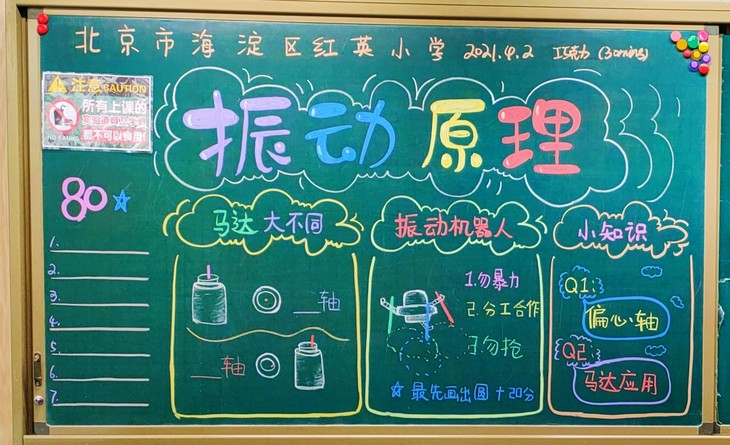 北京市海淀区红英小学 2021.4.2 巧克力 (30mins)
注意 CAUTION
所有上课的
都不可以食用!
振动原理
80
马达大不同
振动机器人
小知识
1.
2.
3.
4.
5.
6.
7.
__轴
__轴
1.勿暴力
2.分工合作
3勿抢
☆最先画出圆+20分
Q1:
偏心轴
Q2
马达应用